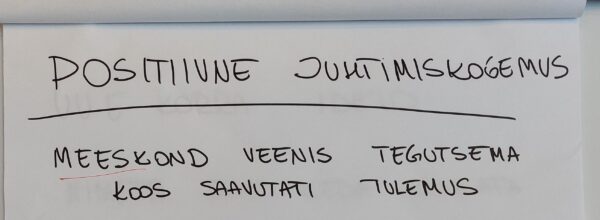 POSITIIVNE JUHTIMISKOGEMUS
MEESKOND VEENIS TEGUTSEMA
KOOS SAAVUTATI TULEMUS